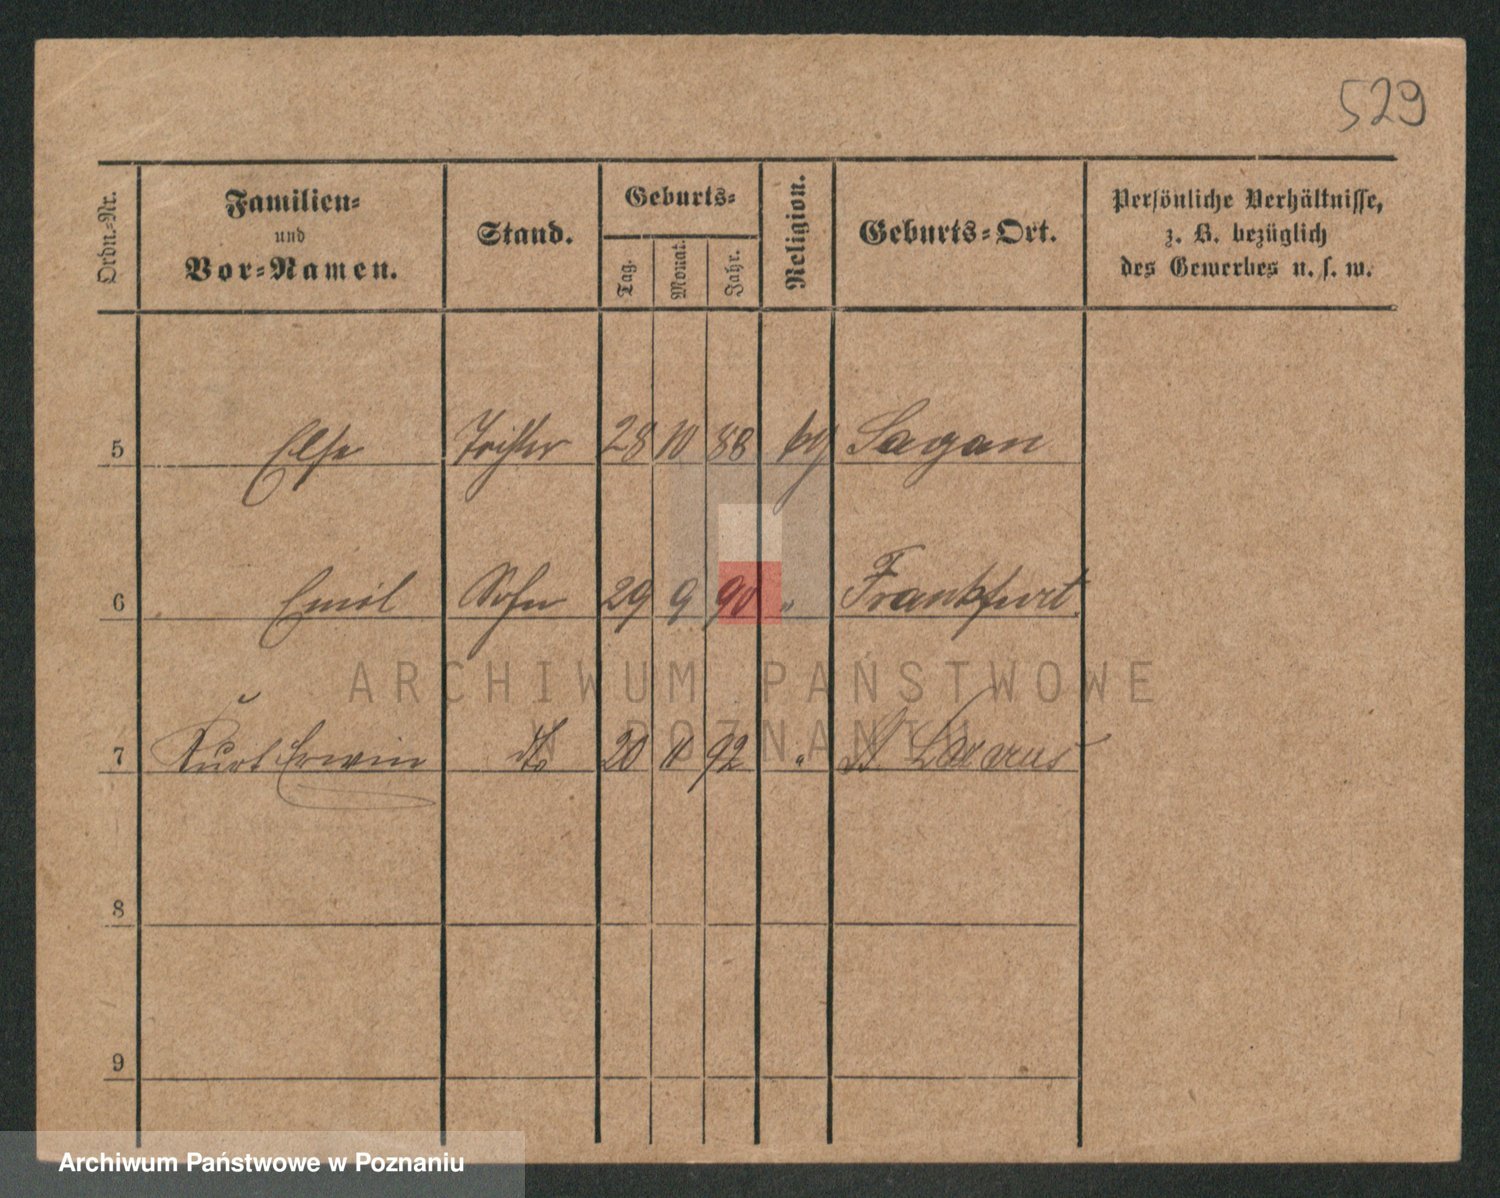 529
Ordn.-Nr.
Familien-
und
Vor-Namen.
Stand.
Geburts-
Tag.
Monat.
Jahr.
Religion.
Geburts-Ort.
Persönliche Verhältnisse,
z. B. bezüglich
des Gewerbes u. s. w.
5 Else Tochter 28 10 88 Sagan
6 Emil Sohn 29 9 90 " Frankfurt
7 Kurt Erwin dto 20 11 92 " St. Lazarus
8
9
ARCHIWUM PAŃSTWOWE
W POZNANIU
Archiwum Państwowe w Poznaniu